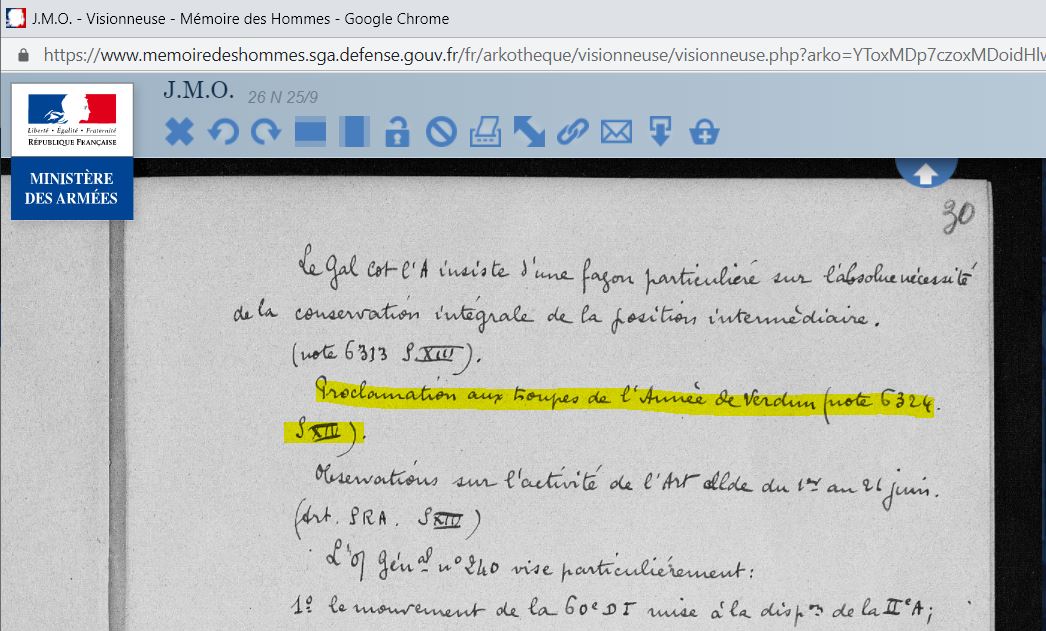 J.M.O. - Visionneuse - Mémoire des Hommes - Google Chrome
https://www.memoiredeshommes.sga.defense.gouv.fr/fr/arkotheque/visionneuse/visionneuse.php?arko=YToxMDp7czoxMDoidHlw
J.M.O. 26 N 25/9
Liberté • Égalité • Fraternité
RÉPUBLIQUE FRANÇAISE
MINISTÈRE
DES ARMÉES
30
Le Gal Cdt l'A insiste d'une façon particulière sur l'absolue nécessité
de la conservation intégrale de la position intermédiaire.
(note 6313 S XIII).
Proclamation aux troupes de l'Armée de Verdun (note 6324.
S XIV).
Observations sur l'activité de l'Art allde du 1er au 21 juin.
(Art. SRA. S XIV)
L'O/ Génal n° 240 vise particulièrement:
1º le mouvement de la 60e DI mise à la dispon de la IIe A;